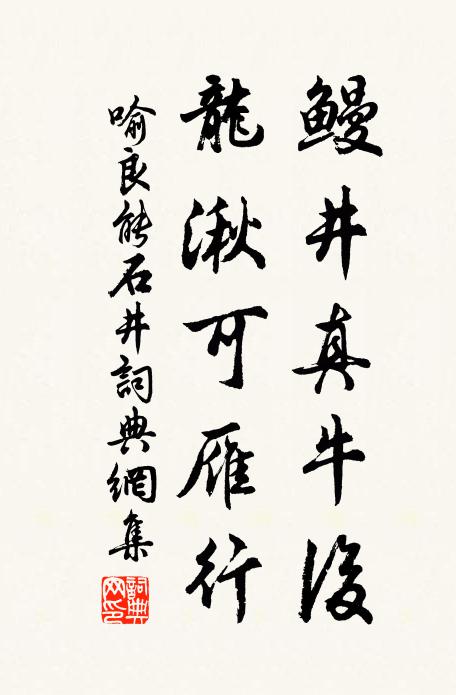 鰻井真牛後
龍湫可雁行
喻良能石井詞典網集
詞典網印